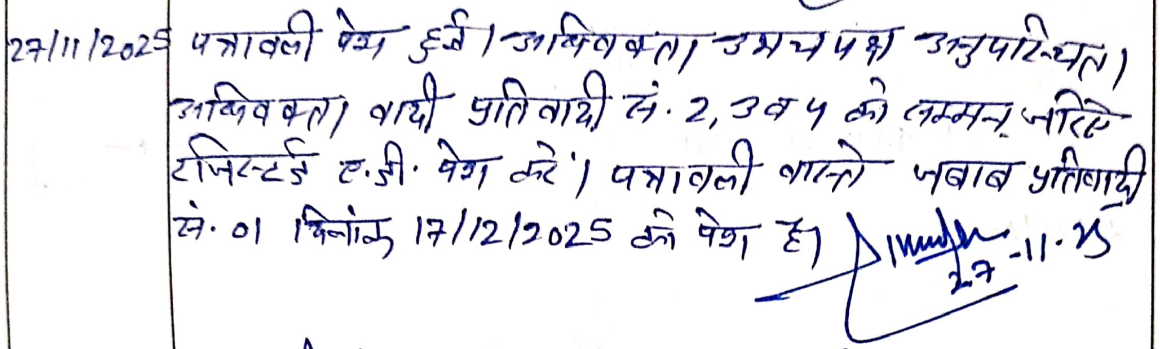 27/11/2025 पत्रावली पेश हुई। अधिवक्ता उभय पक्ष अनुपस्थित।
अधिवक्ता वादी प्रतिवादी सं. 2, 3 व 4 को सम्मन जरिए
रजिस्टर्ड ए.डी. पेश करें। पत्रावली वास्ते जबाब प्रतिवादी
सं. 01 दिनांक 17/12/2025 को पेश हो।
27-11-25